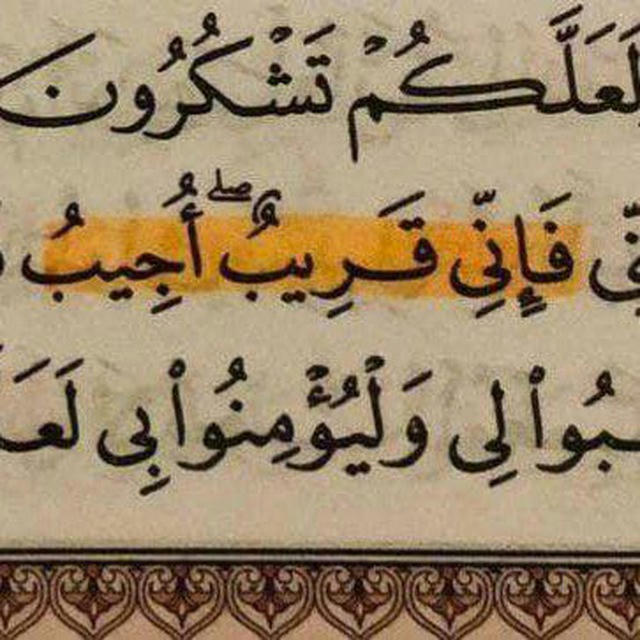 لَعَلَّكُمْ تَشْكُرُونَ
نِّى فَإِنِّى قَرِيبٌ ۖ أُجِيبُ
ـبُوا۟ لِى وَلْيُؤْمِنُوا۟ بِى لَعَـ